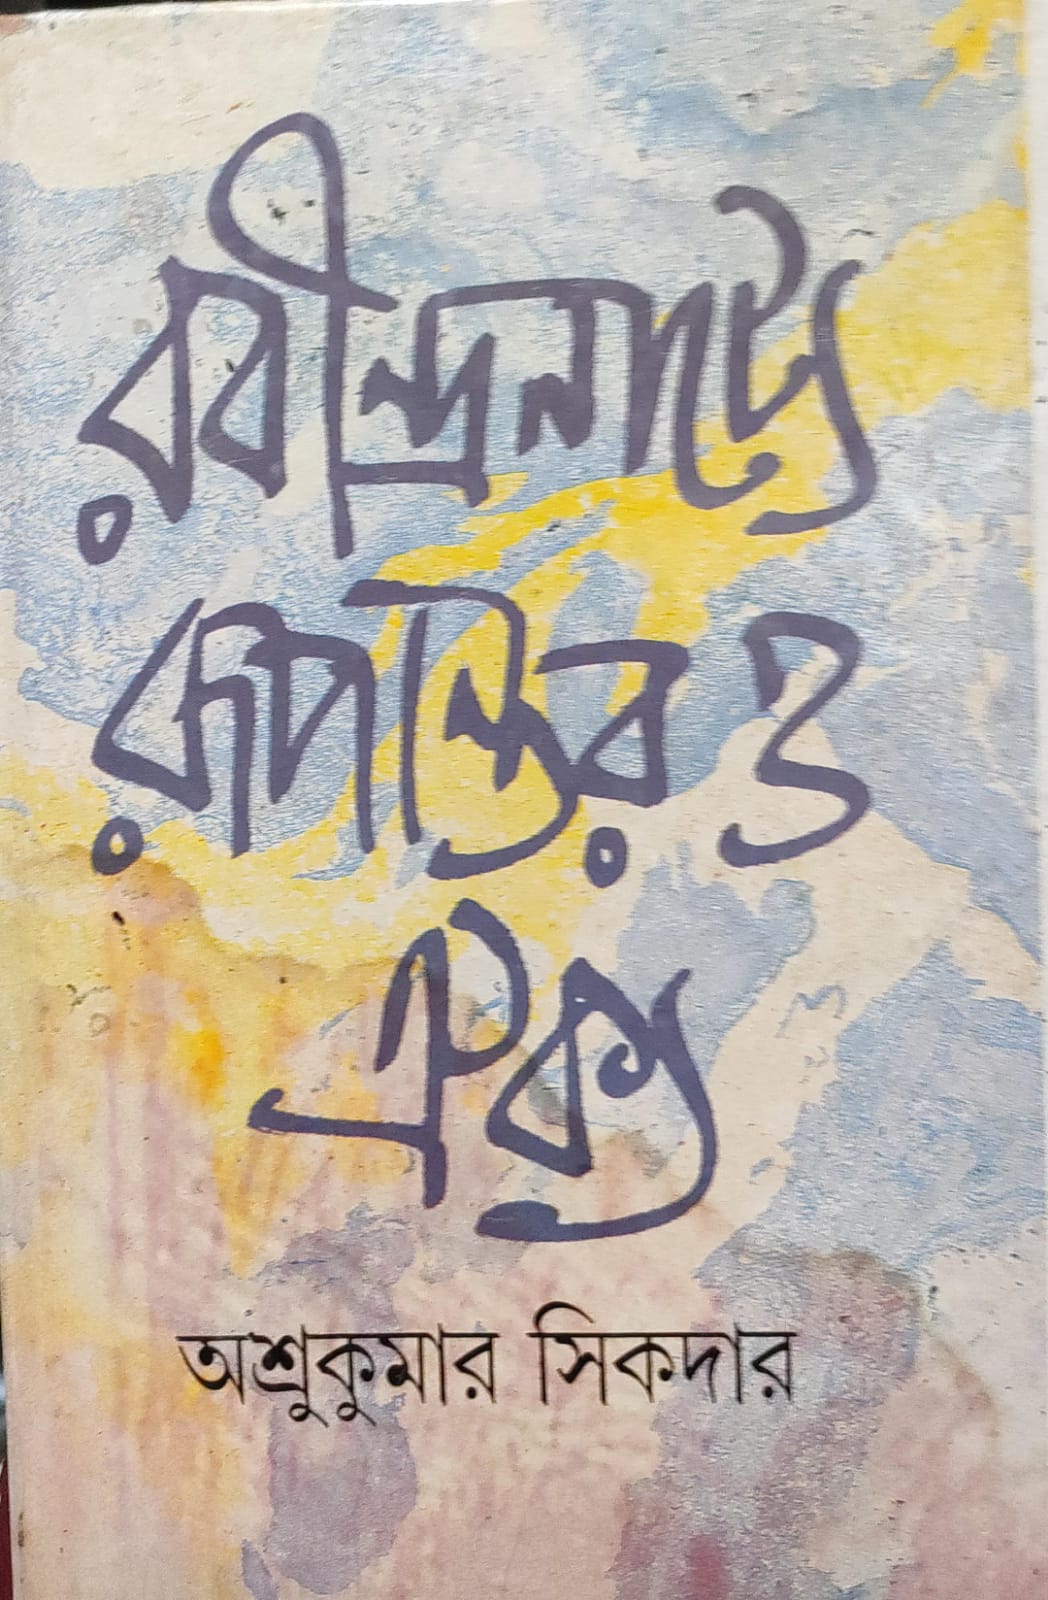 রবীন্দ্রনাট্যে
রূপান্তর ও
ঐক্য
অশ্রুকুমার সিকদার